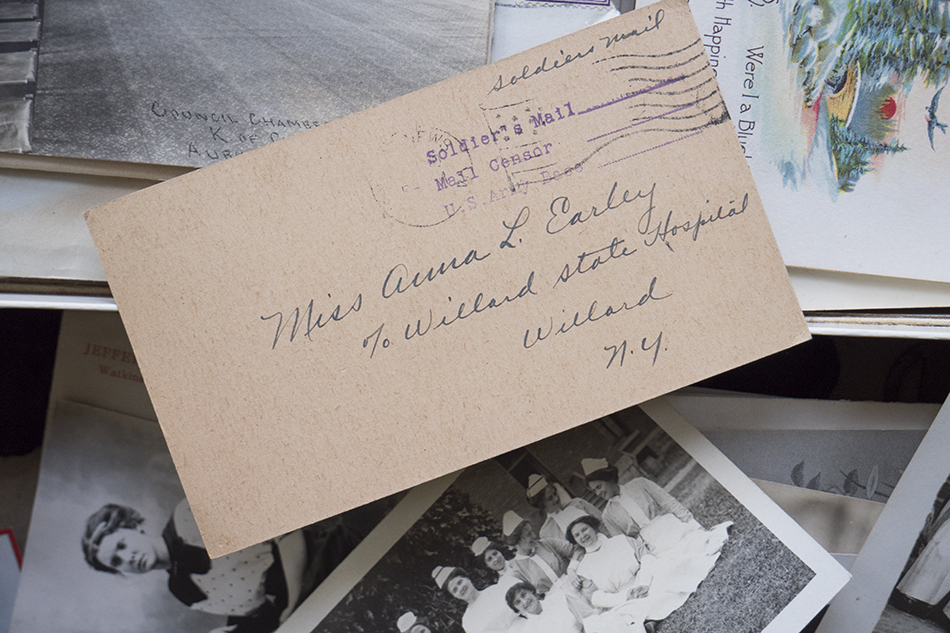 Soldiers mail
Soldier's Mail
Mail Censor
U.S. Army Base
Miss Anna L. Earley
℅ Willard State Hospital
Willard
N.Y.
COUNCIL CHAMBE
K OF
AUR
Were I a Blu
h Happin
JEFFE
Watkin